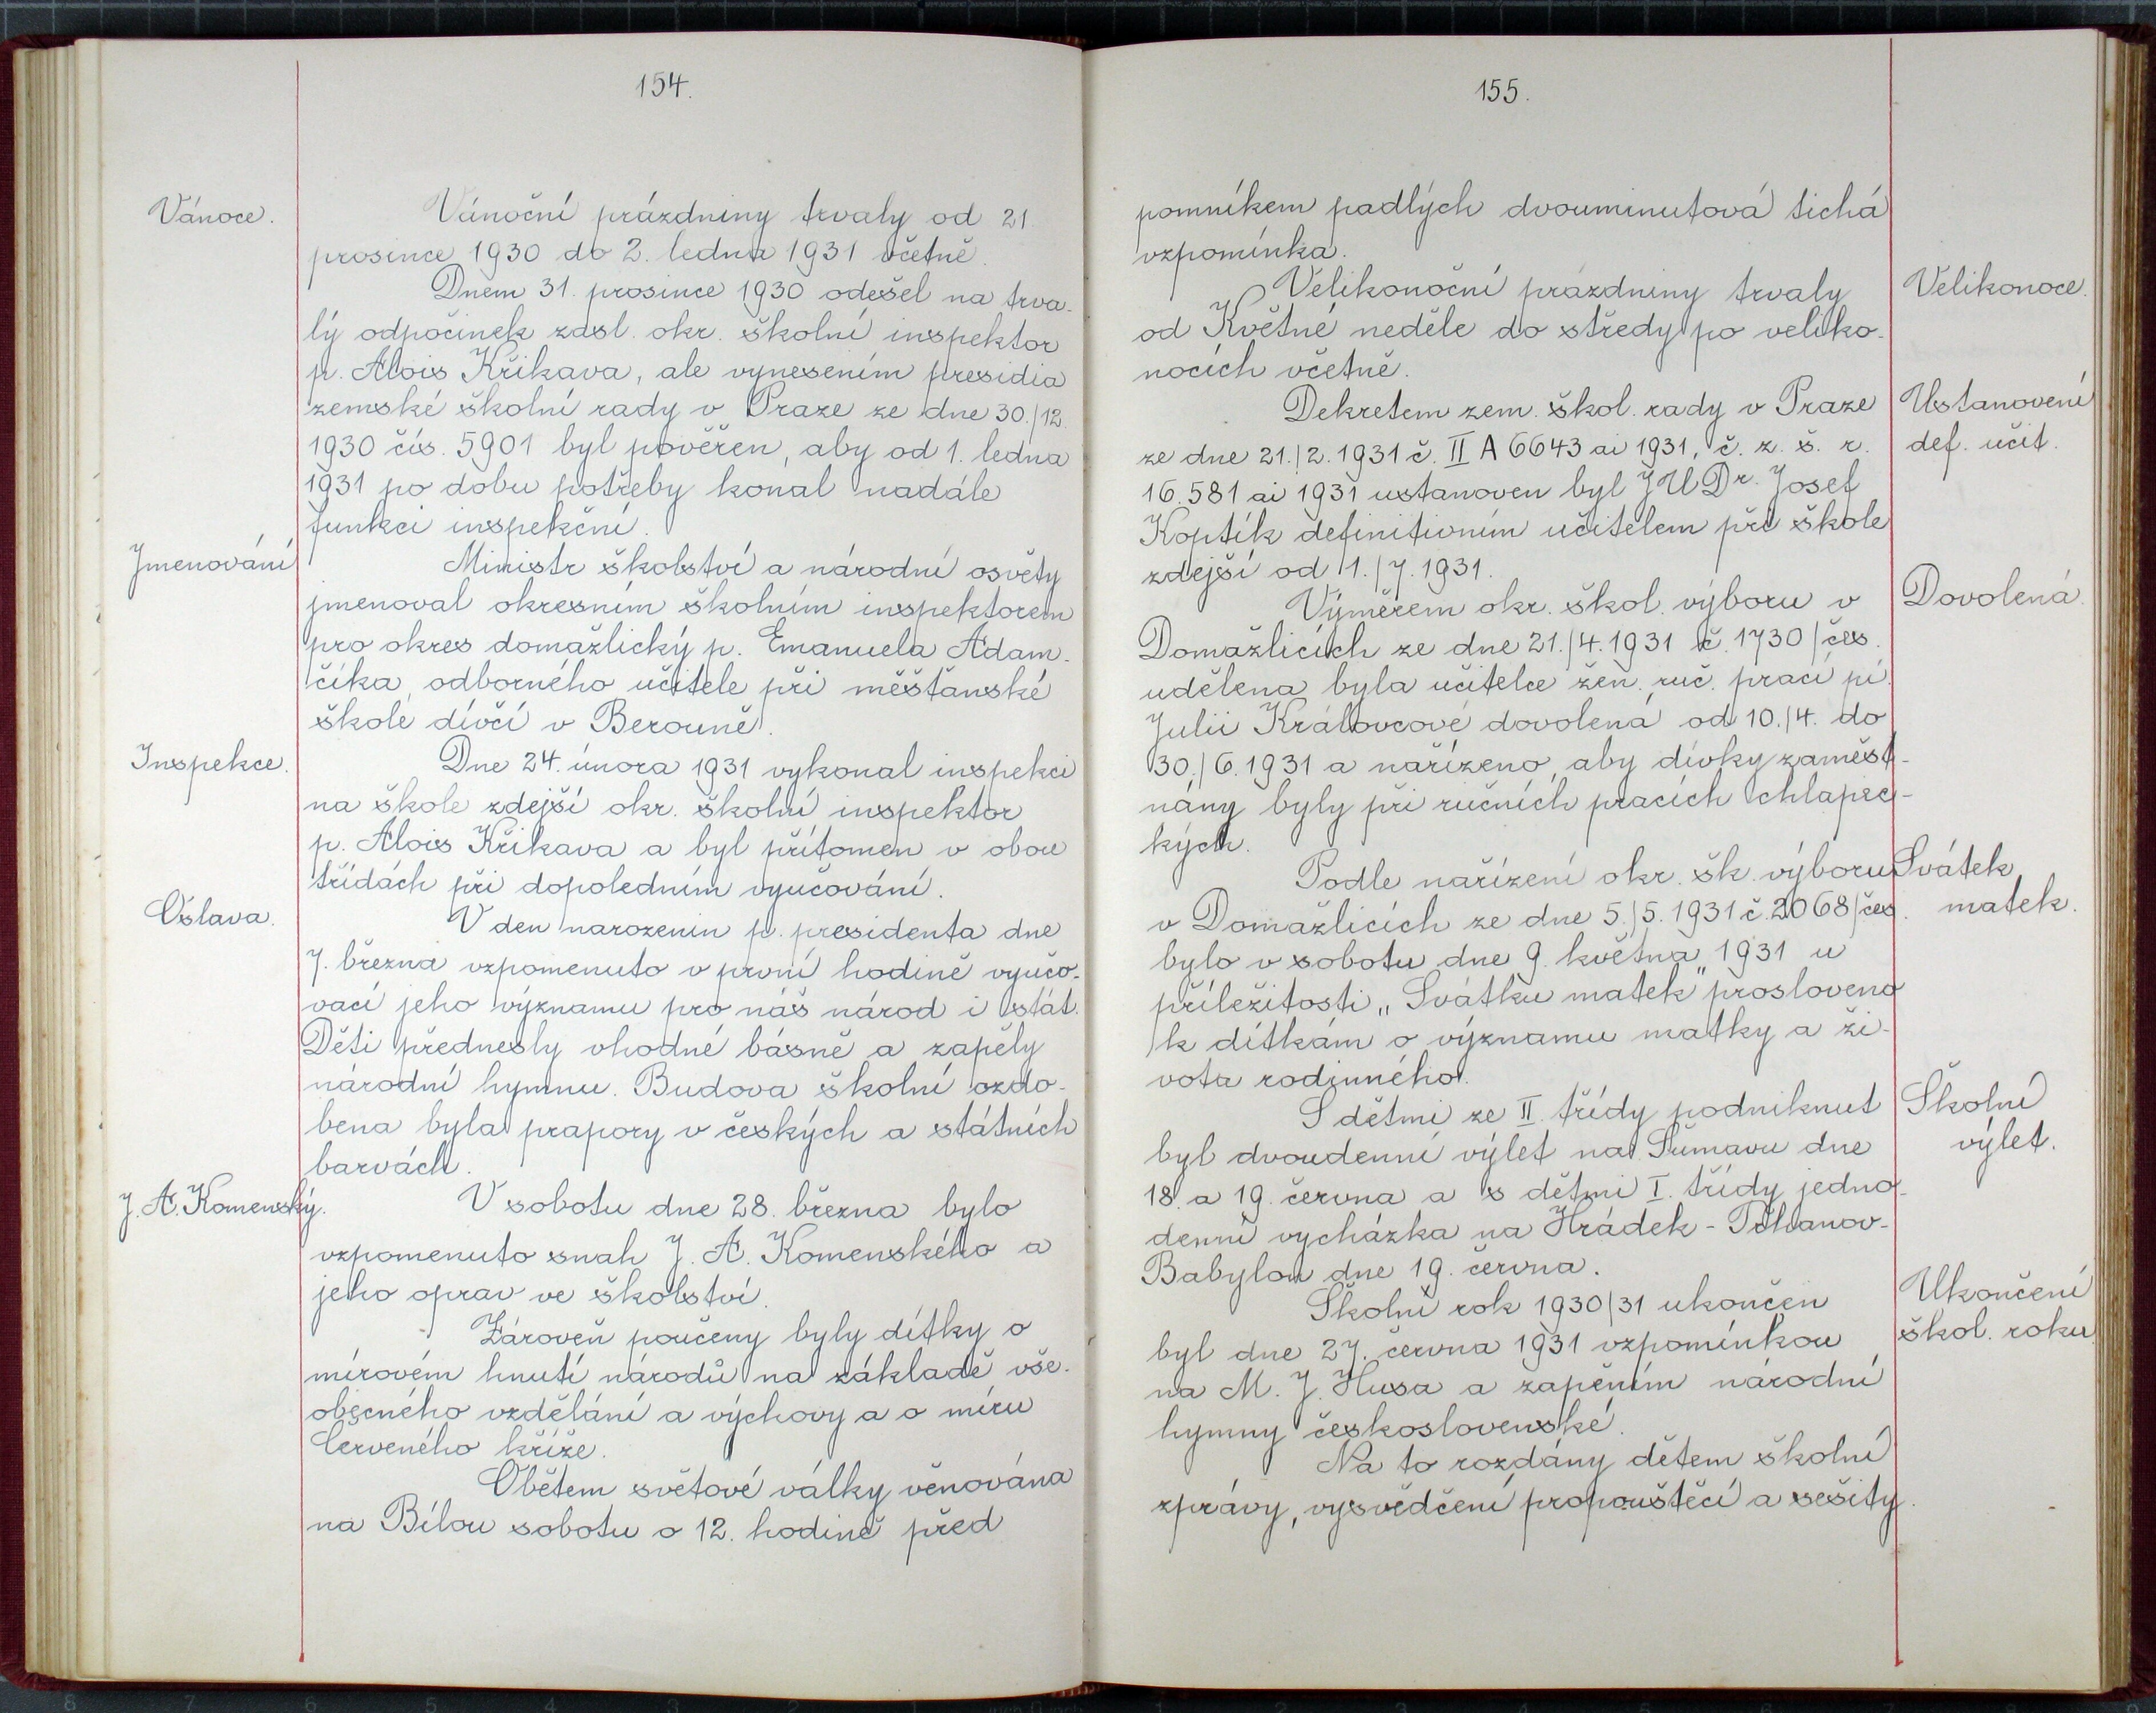 154.
Vánoce.
Vánoční prázdniny trvaly od 21
prosince 1930 do 2. ledna 1931 včetně.
Dnem 31. prosince 1930 odešel na trva-
lý odpočinek zasl. okr. školní inspektor
p. Alois Křikava, ale vynesením presidia
zemské školní rady v Praze ze dne 30./12.
1930 čís. 5901 byl pověřen, aby od 1. ledna
1931 po dobu potřeby konal nadále
funkci inspekční.
Jmenování
Ministr školství a národní osvěty
jmenoval okresním školním inspektorem
pro okres domažlický p. Emanuela Adam-
číka, odborného učitele při měšťanské
škole dívčí v Berouně.
Inspekce.
Dne 24. února 1931 vykonal inspekci
na škole zdejší okr. školní inspektor
p. Alois Křikava a byl přítomen v obou
třídách při dopoledním vyučování.
Oslava.
V den narozenin p. presidenta dne
7. března vzpomenuto v první hodině vyučo-
vací jeho významu pro náš národ i stát.
Děti přednesly vhodné básně a zapěly
národní hymnu. Budova školní ozdo-
bena byla prapory v českých a státních
barvách.
J. A. Komenský.
V sobotu dne 28. března bylo
vzpomenuto snah J. A. Komenského a
jeho oprav ve školství.
Zároveň poučeny byly dítky o
mírovém hnutí národů na základě vše-
obecného vzdělání a výchovy a o míru
Červeného kříže.
Obětem světové války věnována
na Bílou sobotu o 12. hodině před
155.
pomníkem padlých dvouminutová tichá
vzpomínka.
Velikonoční prázdniny trvaly
Velikonoce.
od Květné neděle do středy po veliko-
nocích včetně.
Dekretem zem. škol. rady v Praze
Ustanovení
ze dne 21./2. 1931 č. II A 6643 ai 1931, č. z. š. r.
def. učit.
16.581 ai 1931 ustanoven byl JUDr. Josef
Koptík definitivním učitelem při škole
zdejší od 1./7. 1931.
Výměrem okr. škol. výboru v
Dovolená.
Domažlicích ze dne 21./4. 1931 č. 1730/čes.
udělena byla učitelce žen. ruč. prací pí.
Julii Královcové dovolená od 10./4. do
30./6. 1931 a nařízeno, aby dívky zaměst-
nány byly při ručních pracích chlapec-
kých.
Podle nařízení okr. šk. výboru
Svátek
v Domažlicích ze dne 5./5. 1931 č. 2068/čes.
matek.
bylo v sobotu dne 9. května 1931 u
příležitosti „Svátku matek" prosloveno
k dítkám o významu matky a ži-
vota rodinného.
S dětmi ze II. třídy podniknut
Školní
byl dvoudenní výlet na Šumavu dne
výlet.
18. a 19. června a s dětmi I. třídy jedno-
denní vycházka na Hrádek - Pchanov-
Babylon dne 19. června.
Školní rok 1930/31 ukončen
Ukončení
byl dne 27. června 1931 vzpomínkou
škol. roku
na M. J. Husa a zapěním národní
hymny československé.
Na to rozdány dětem školní
zprávy, vysvědčení propouštěcí a sešity.